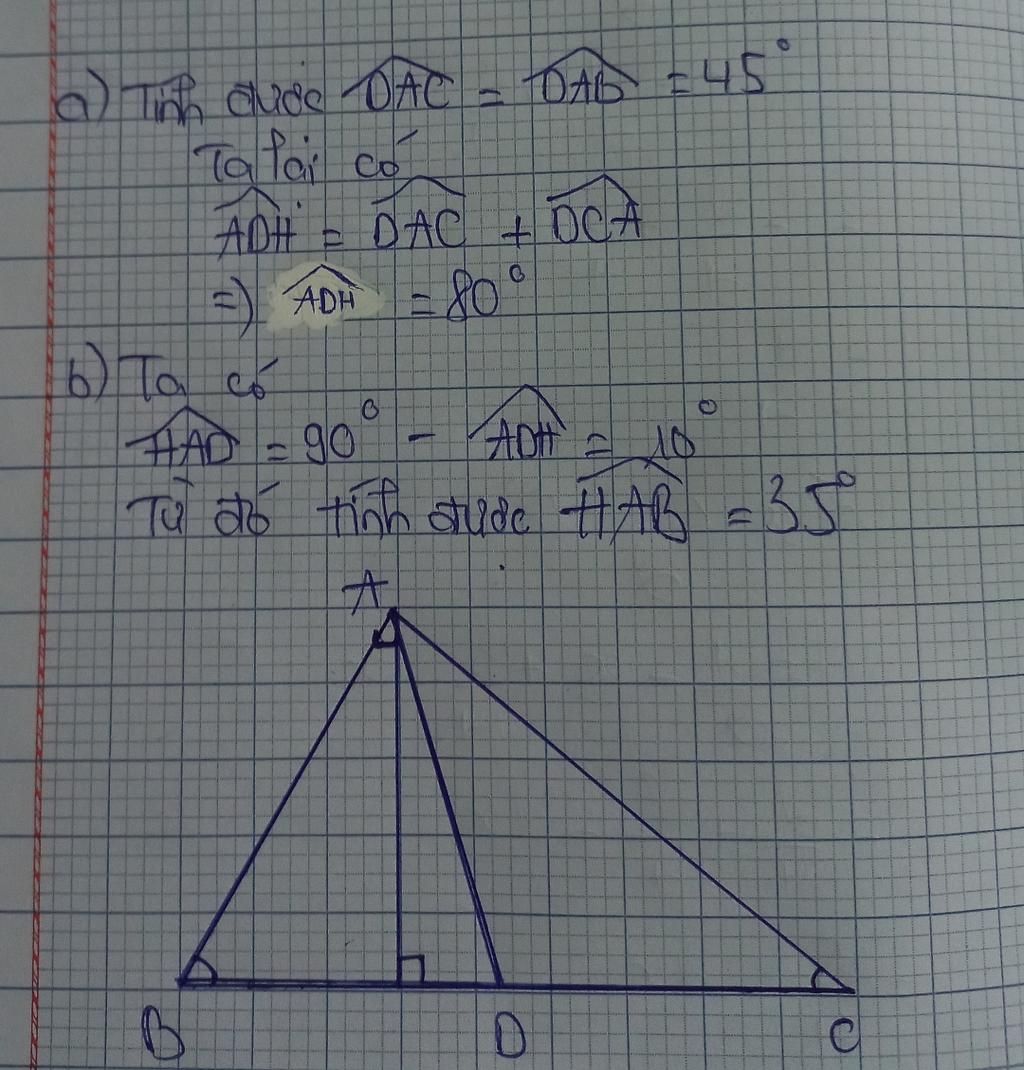 a) Tính được DAC = DAB = 45°
Ta lại có
ADH = DAC + DCA
=) ADH = 80°
b) Ta có
HAD = 90° - ADH = 10°
Từ đó tính được HAB = 35°
A
B D C